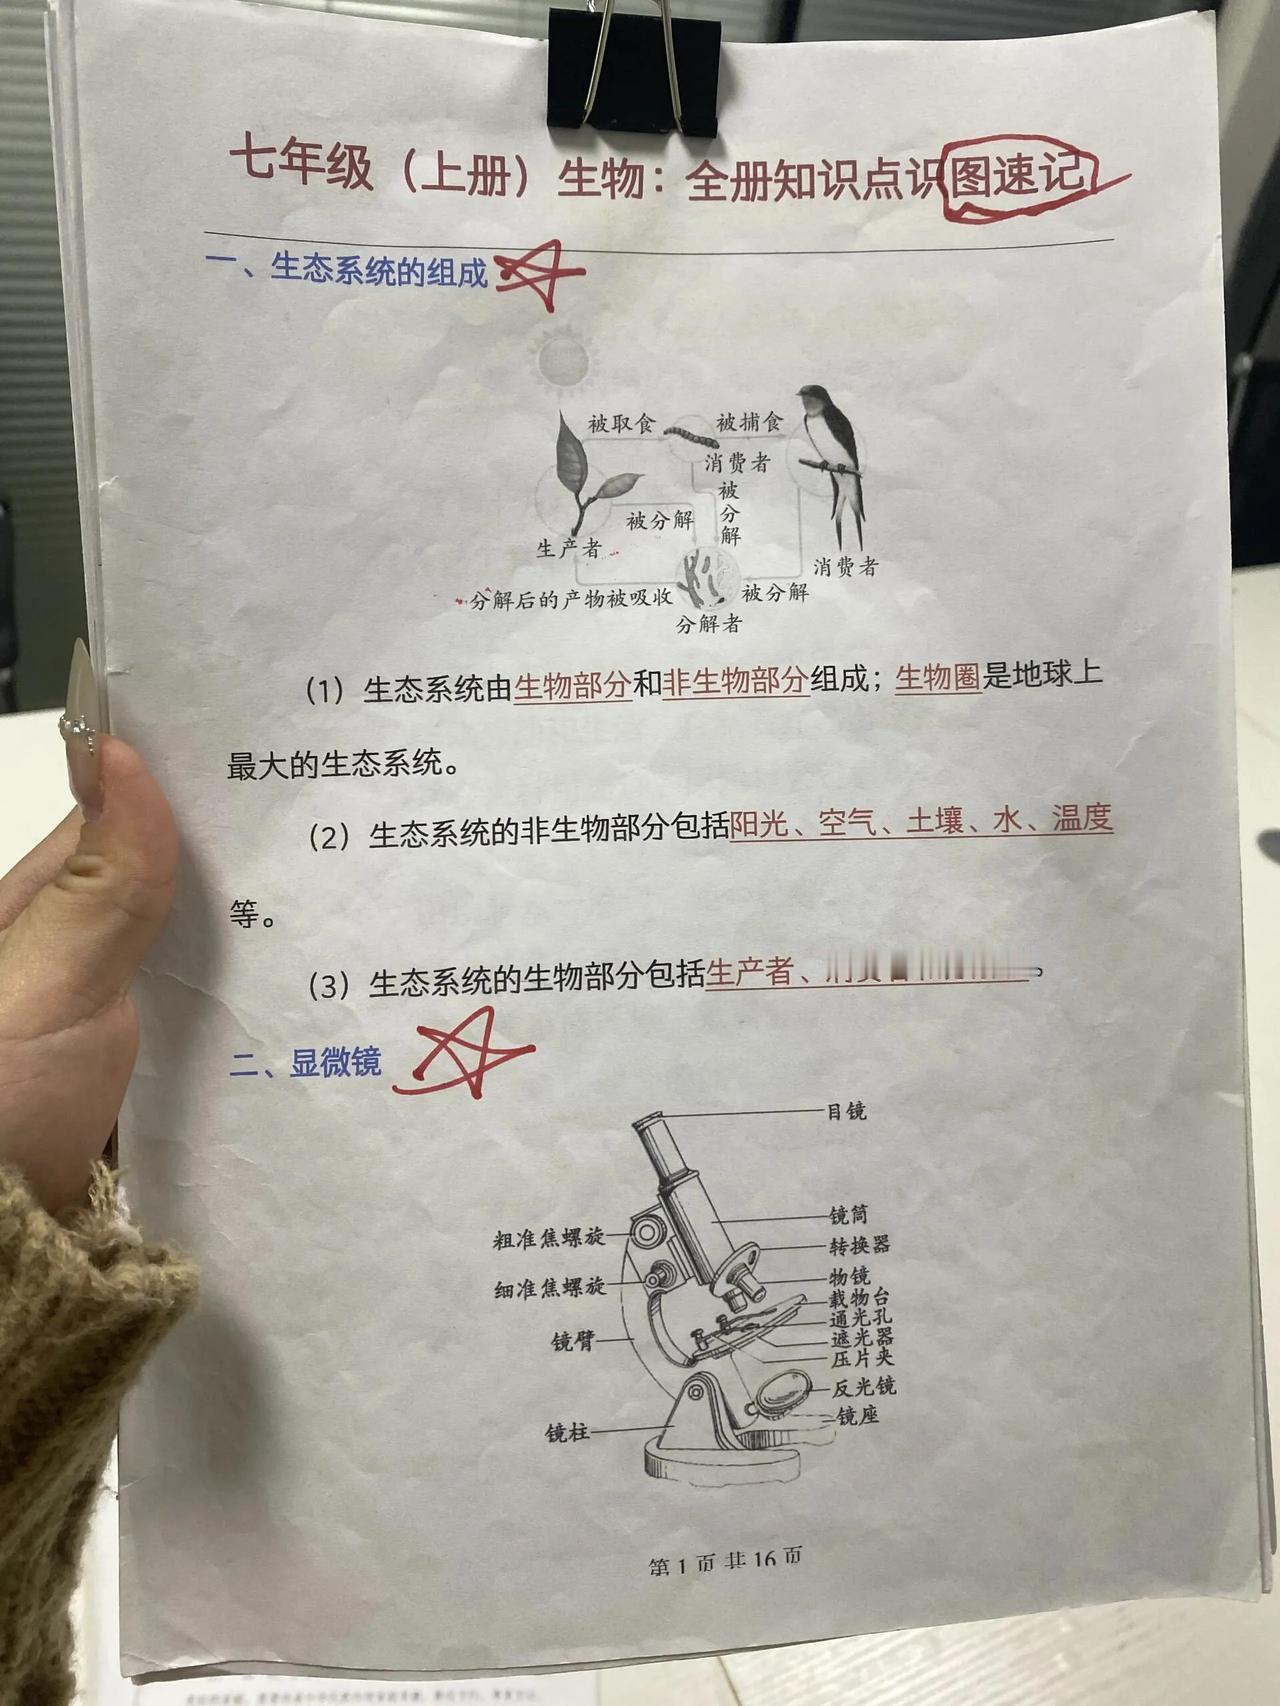 七年级（上册）生物：全册知识点识图速记
一、生态系统的组成
被取食
被捕食
消费者
被分解
被分解
生产者
消费者
分解后的产物被吸收
被分解
分解者
（1）生态系统由生物部分和非生物部分组成；生物圈是地球上
最大的生态系统。
（2）生态系统的非生物部分包括阳光、空气、土壤、水、温度
等。
（3）生态系统的生物部分包括生产者、
二、显微镜
目镜
镜筒
粗准焦螺旋
转换器
细准焦螺旋
物镜
载物台
通光孔
遮光器
镜臂
压片夹
反光镜
镜座
镜柱
第 1 页 共 16 页